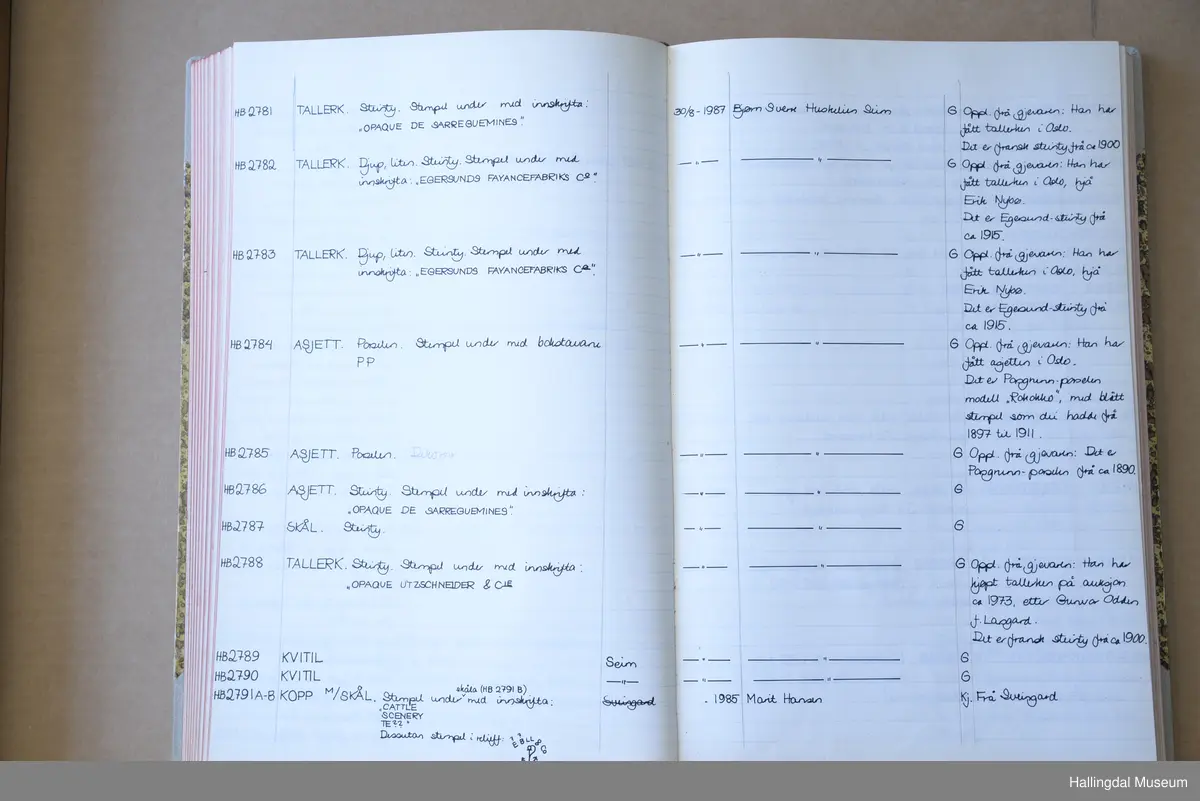 HB 2781 TALLERK. Steinty. Stempel under med innskrifta: 30/8-1987 Bjørn Sverre Huskelien Seim G Oppl. frå gjevaren: Han har
„OPAQUE DE SARREGUEMINES". fått tallerken i Oslo.
Det er fransk steinty frå ca 1900
HB 2782 TALLERK. Djup, liten. Steinty. Stempel under med —„— —„— G Oppl. frå gjevaren: Han har
innskrifta: „EGERSUNDS FAYANCEFABRIKS Co". fått tallerken i Oslo, hjå
Erik Nybø.
Det er Egesund-steinty frå
ca 1915.
HB 2783 TALLERK. Djup, liten. Steinty. Stempel under med —„— —„— G Oppl. frå gjevaren: Han har
innskrifta: „EGERSUNDS FAYANCEFABRIKS Co". fått tallerken i Oslo, hjå
Erik Nybø.
Det er Egesund-steinty frå
ca 1915.
HB 2784 ASJETT. Poselen. Stempel under med bokstavane —„— —„— G Oppl. frå gjevaren: Han har
PP fått asjetten i Oslo.
Det er Posgrunn-poselen
modell „Rokokko", med blått
stempel som dei hadde frå
1897 til 1911.
HB 2785 ASJETT. Poselen. —„— —„— G Oppl. frå gjevaren: Det er
Posgrunn-poselen frå ca 1890.
HB 2786 ASJETT. Steinty. Stempel under med innskrifta: —„— —„— G
„OPAQUE DE SARREGUEMINES".
HB 2787 SKÅL. Steinty. —„— —„— G
HB 2788 TALLERK. Steinty. Stempel under med innskrifta: —„— —„— G Oppl. frå gjevaren: Han har
„OPAQUE UTZSCHNEIDER & Cie kjøpt tallerken på auksjon
ca 1973, etter Gunvor Odden
f. Lasgard.
Det er fransk steinty frå ca 1900.
HB 2789 KVITIL Seim —„— —„— G
HB 2790 KVITIL —„— —„— —„— G
HB 2791 A-B KOPP M/SKÅL. Stempel under skåla (HB 2791 B) med innskrifta: Sveingard . 1985 Marit Hansen Kj. Frå Sveingard
„CATTLE
SCENERY
TE??"
Dessutan stempel i relieff: ??EBLL
Hallingdal Museum